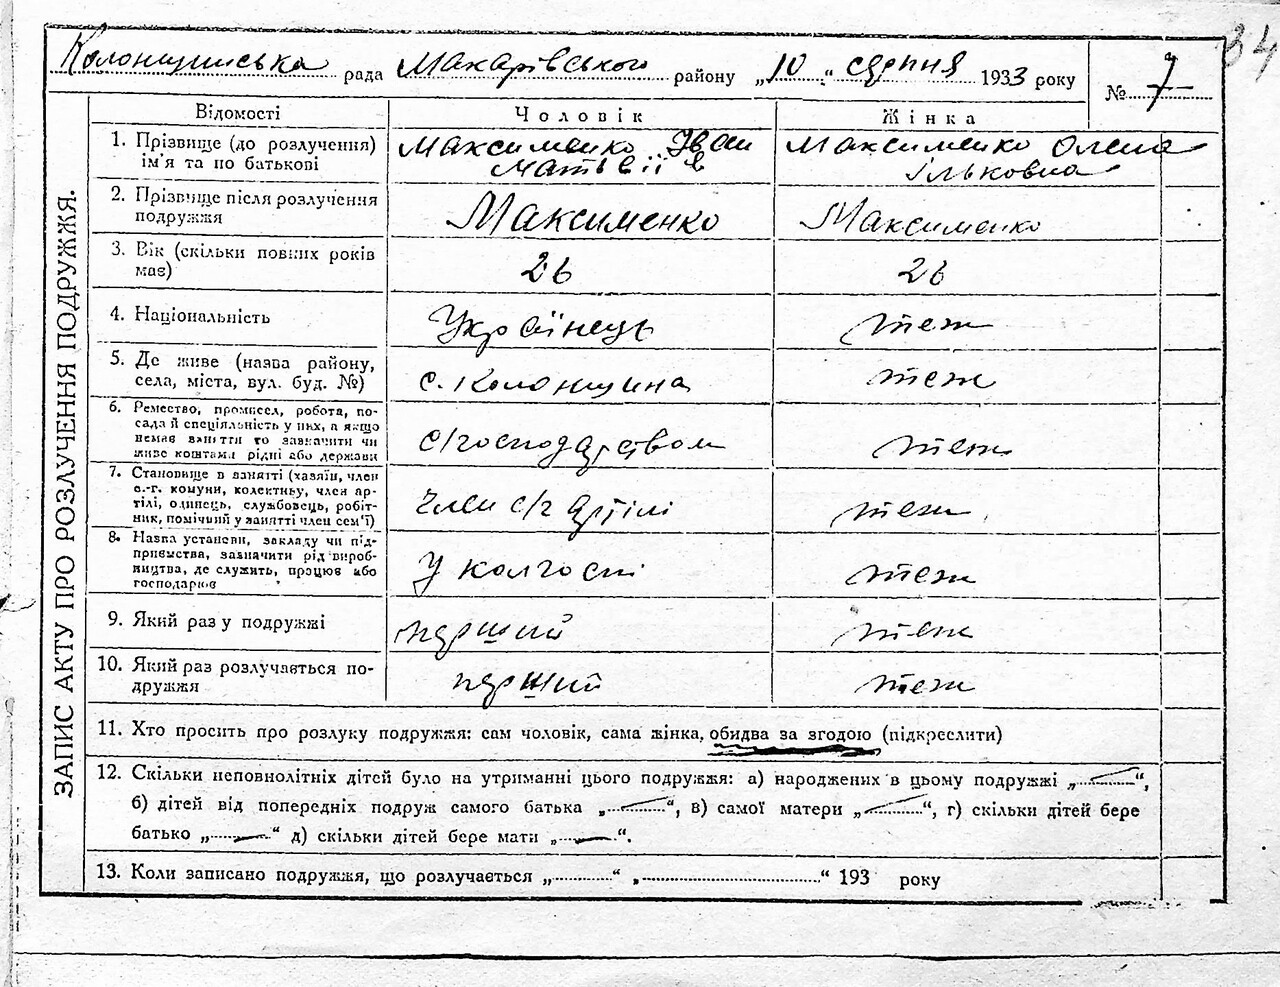 34
Колонщинська рада Макарівського району „10“ серпня 1933 року № 7
ЗАПИС АКТУ ПРО РОЗЛУЧЕННЯ ПОДРУЖЖЯ.
Відомості Чоловік Жінка
1. Прізвище (до розлучення) Максименко Іван Максименко Олена
ім'я та по батькові Матвіїв Ільковна
2. Прізвище після розлучення
подружжя Максименко Максименко
3. Вік (скільки повних років
має) 26 26
4. Національність Українець теж
5. Де живе (назва району,
села, міста, вул. буд. №) с. Колонщина теж
6. Ремество, промисел, робота, по-
сада й спеціяльність у них, а якщо
немає заняття то зазначити чи с/господарством теж
живе коштами рідні або держави
7. Становище в занятті (хазяїн, член
с.-г. комуни, колективу, член ар-
тілі, одинець, службовець, робіт- член с/г артілі теж
ник, помічний у занятті член сем'ї)
8. Назва установи, закладу чи під-
приємства, зазначити рід вироб-
ництва, де служить, працює або У колгоспі теж
господарює
9. Який раз у подружжі перший теж
10. Який раз розлучається по-
дружжя перший теж
11. Хто просить про розлуку подружжя: сам чоловік, сама жінка, обидва за згодою (підкреслити)
12. Скільки неповнолітніх дітей було на утриманні цього подружжя: а) народжених в цьому подружжі „—“,
б) дітей від попередніх подруж самого батька „—“, в) самої матери „—“, г) скільки дітей бере
батько „—“ д) скільки дітей бере мати „—“.
13. Коли записано подружжя, що розлучається „..........“ „..............................“ 193 року